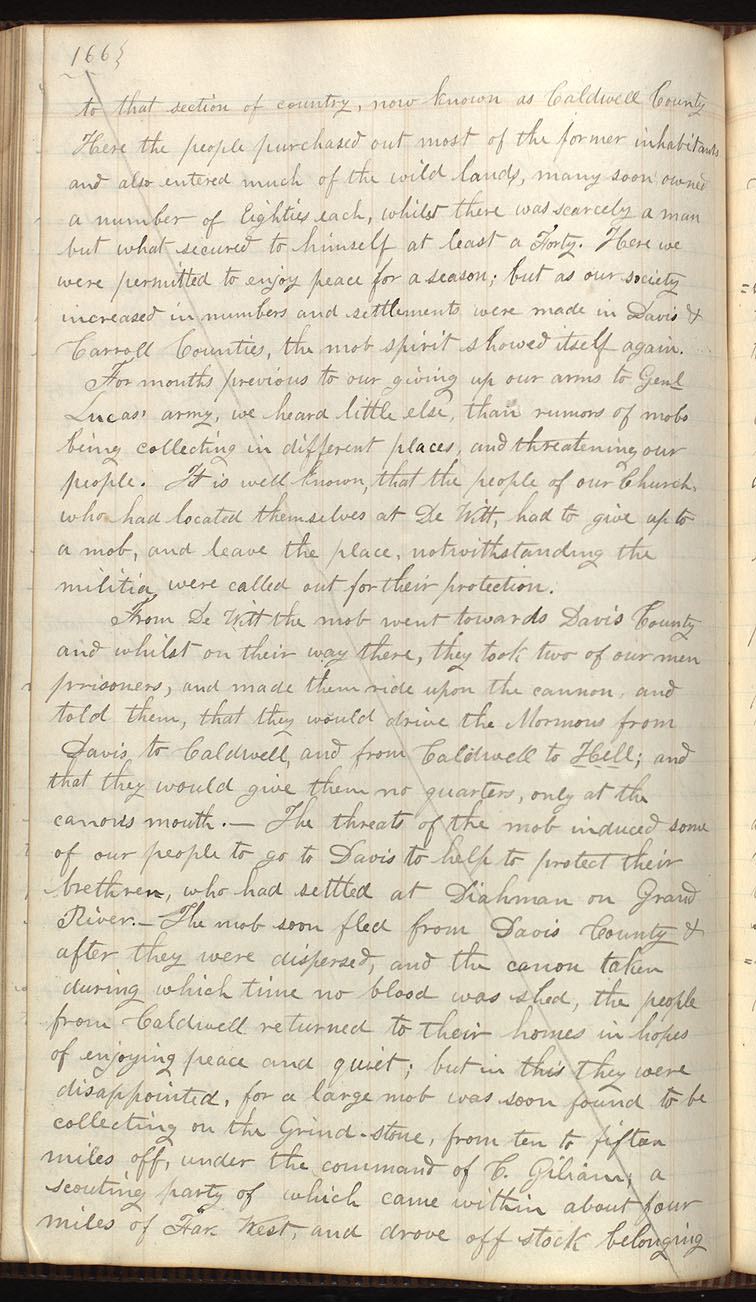 166}
to that section of country, now known as Caldwell County
Here the people purchased out most of the former inhabitants
and also entered much of the wild lands, many soon owned
a number of Eighties each, whilst there was scarcely a man
but what secured to himself at least a Forty. Here we
were permitted to enjoy peace for a season; but as our society
increased in numbers and settlements were made in Davis &
Carroll Counties, the mob spirit showed itself again.
For months previous to our giving up our arms to Genl
Lucas' army, we heard little else, than rumors of mobs
being collecting in different places, and threatening our
people. It is well known, that the people of our Church,
who had located themselves at De Witt, had to give up to
a mob, and leave the place, notwithstanding the
militia were called out for their protection.
From De Witt the mob went towards Davis County
and whilst on their way there, they took two of our men
prrisoners, and made them ride upon the cannon, and
told them, that they would drive the Mormons from
Davis to Caldwell, and from Caldwell to Hell; and
that they would give them no quarters, only at the
canon's mouth.— The threats of the mob induced some
of our people to go to Davis to help to protect their
brethren, who had settled at Diahman on Grand
River.— The mob soon fled from Davis County &
after they were dispersed, and the canon taken
during which time no blood was shed, the people
from Caldwell returned to their homes in hopes
of enjoying peace and quiet; but in this they were
disappointed, for a large mob was soon found to be
collecting on the Grind-stone, from ten to fifteen
miles off, under the command of C. Giliam, a
scouting party of which came within about four
miles of Far West, and drove off stock belonging